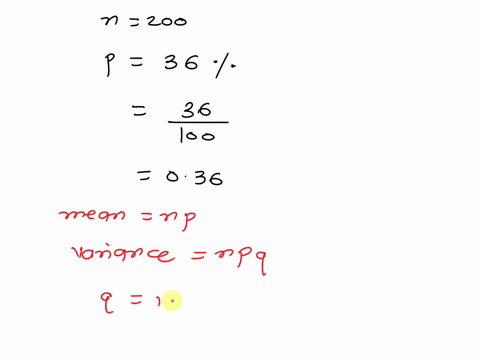 n = 200
p = 36 %
= 36/100
= 0.36
mean = np
variance = npq
q = 1